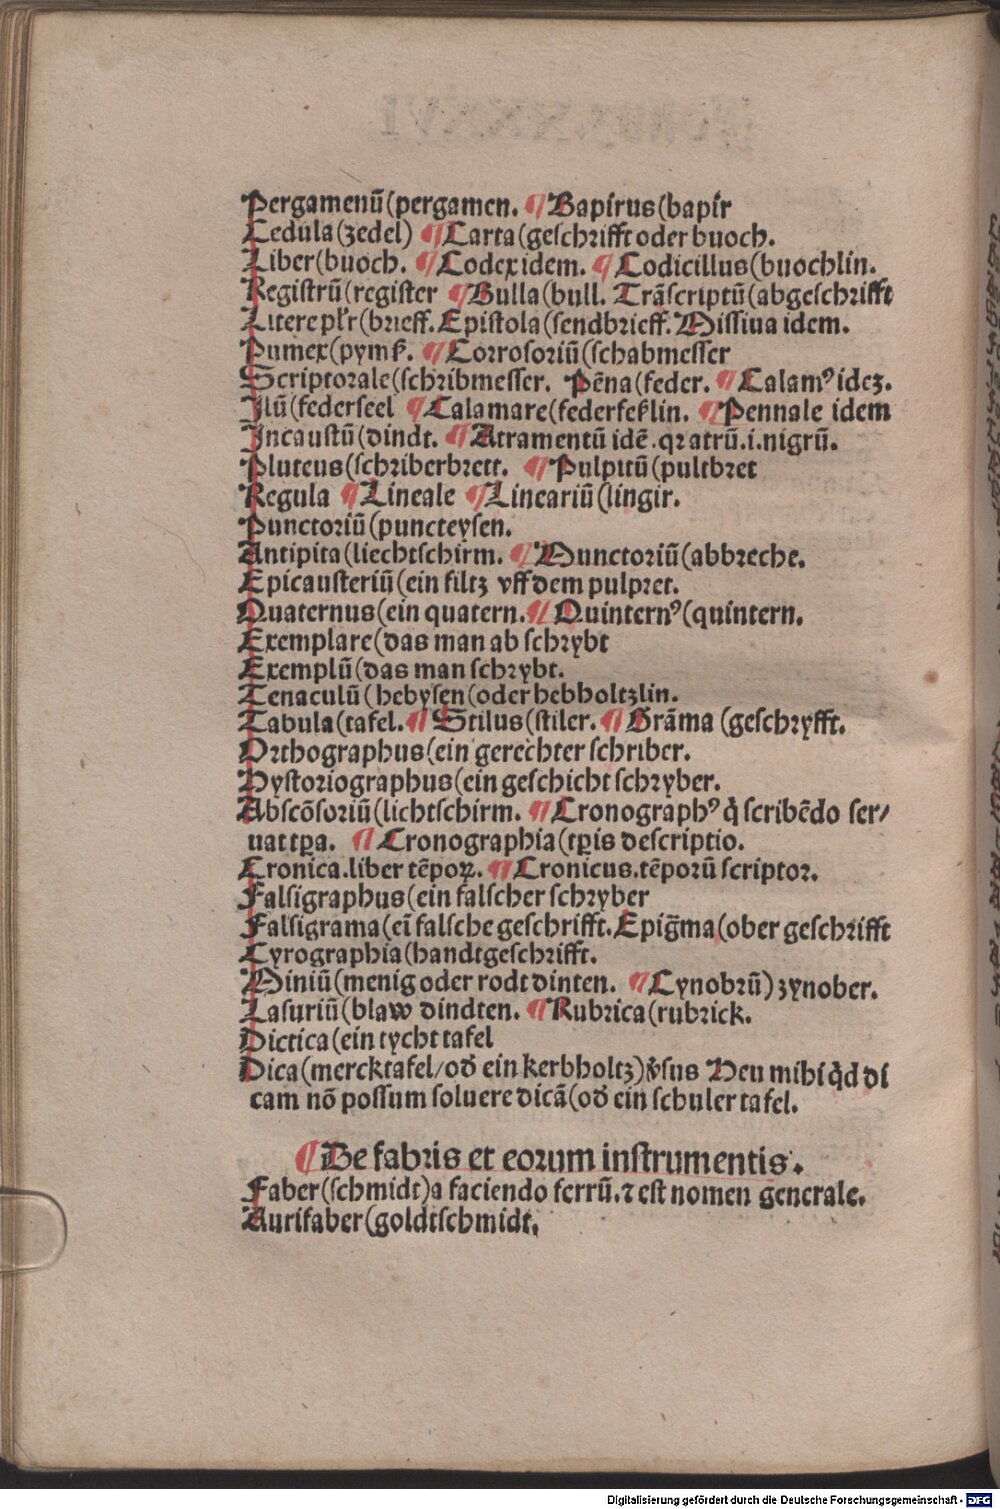 Pergamenū(pergamen. ¶ Bapirus(bapir
Cedula(zedel) ¶ Carta(geſchrifft oder buoch.
Liber(buoch. ¶ Codex idem. ¶ Codicillus(buochlin.
Regiſtrū(regiſter ¶ Bulla(bull. Trāſcriptū(abgeſchrifft
Litere pl'r(brieff. Epiſtola(ſendbrieff. Miſſiua idem.
Pumex(pymß. ¶ Corroſoriū(ſchabmeſſer
Scriptorale(ſchribmeſſer. Pēna(feder. ¶ Calamꝰ idez.
Ilū(federſeel ¶ Calamare(federfeßlin. ¶ Pennale idem
Incauſtū(dindt. ¶ Atramentū idē .qr atrū.i.nigrū.
Pluteus(ſchriberbrett. ¶ Pulpitū(pultbret
Regula ¶ Lineale ¶ Lineariū(lingir.
Punctoriū(puncteyſen.
Antipita(liechtſchirm. ¶ Munctoriū(abbreche.
Epicauſteriū(ein filtz vff dem pulpret.
Quaternus(ein quatern. ¶ Quinternꝰ(quintern.
Exemplare(das man ab ſchrybt
Exemplū(das man ſchrybt.
Tenaculū(hebyſen(oder hebholtzlin.
Tabula(tafel. ¶ Stilus(ſtiler. ¶ Grāma (geſchryfft.
Orthographus(ein gerechter ſchriber.
Hyſtoriographus(ein geſchicht ſchryber.
Abſcōſoriū(lichtſchirm. ¶ Cronographꝰ q̇ ſcribēdo ſer/
uat tꝑa. ¶ Cronographia(tꝑis deſcriptio.
Cronica.liber tēpoꝝ. ¶ Cronicus.tēporū ſcriptor.
Falſigraphus(ein falſcher ſchryber
Falſigrama(eī falſche geſchrifft. Epig̃ma(ober geſchrifft
Cyrographia(handtgeſchrifft.
Miniū(menig oder rodt dinten. ¶ Cynobrū) zynober.
Laſuriū(blaw dindten. ¶ Rubrica(rubrick.
Dictica(ein tycht tafel
Dica(mercktafel/od' ein kerbholtz)v̉ſus Heu mihi q̇d di
cam nō poſſum ſoluere dicā(od' ein ſchuler tafel.
¶ De fabris et eorum inſtrumentis.
Faber(ſchmidt)a faciendo ferrū.⁊ eſt nomen generale.
Aurifaber(goldtſchmidt.
Digitalisierung gefördert durch die Deutsche Forschungsgemeinschaft - DFG